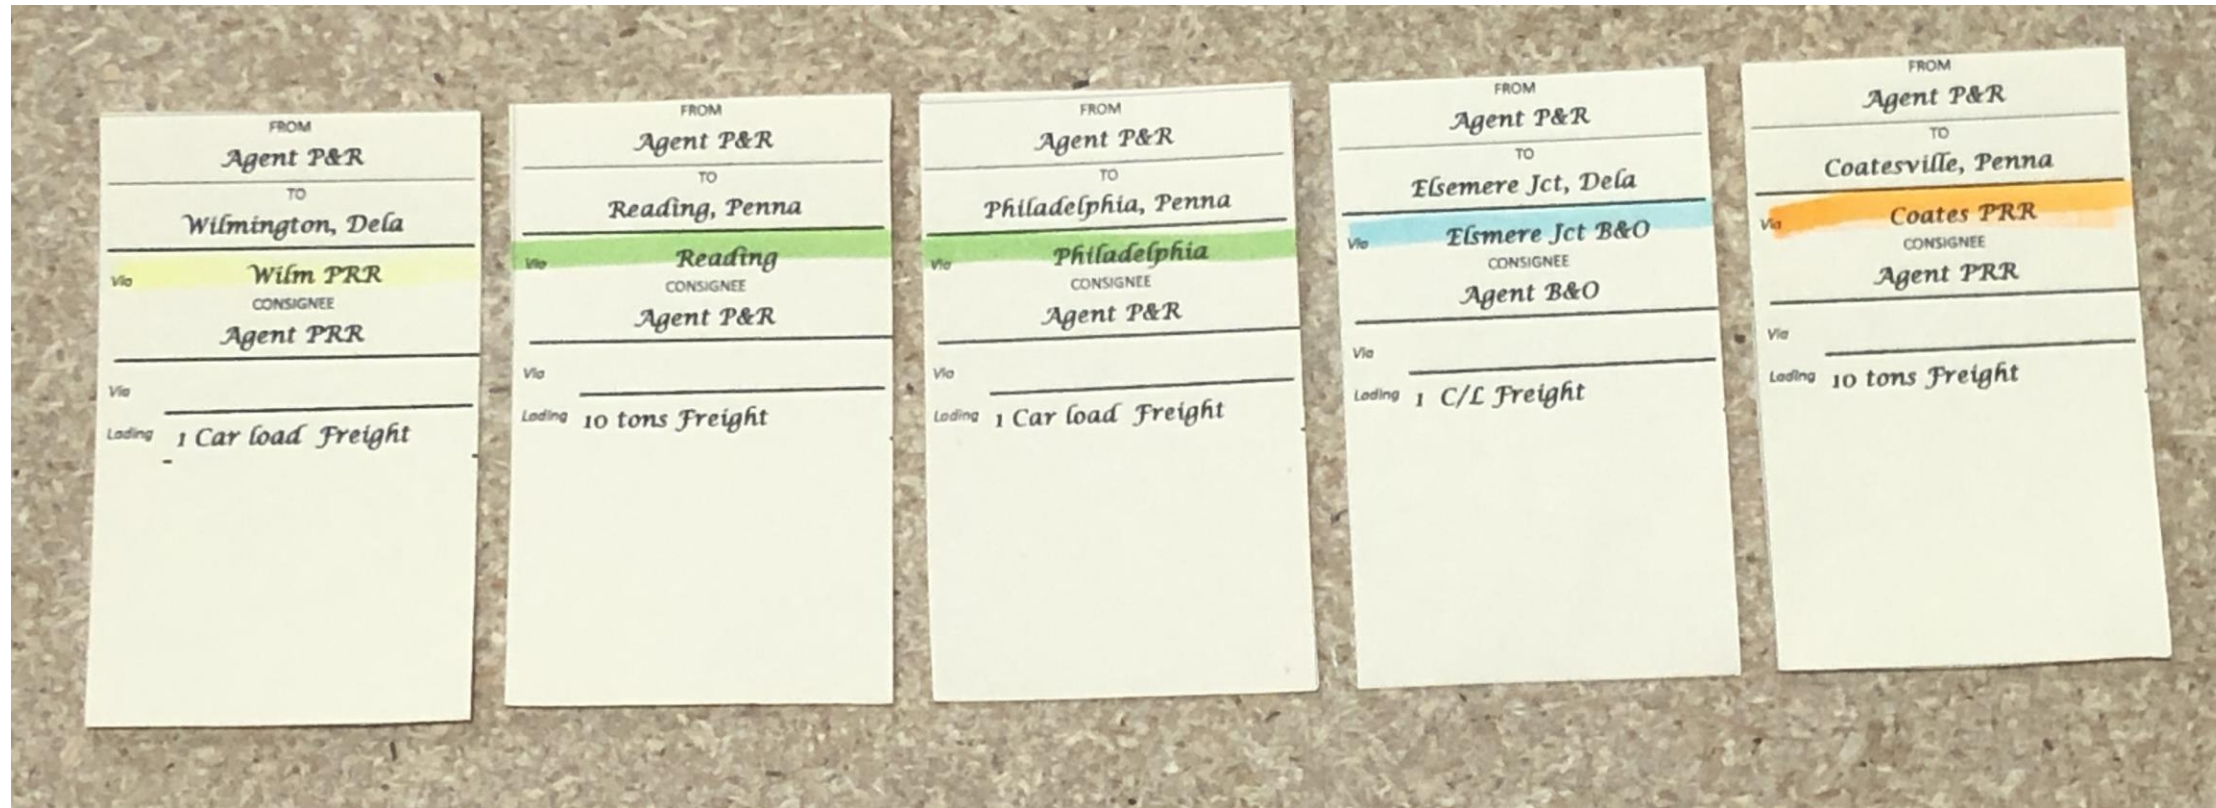 FROM
Agent P&R
TO
Wilmington, Dela
Via Wilm PRR
CONSIGNEE
Agent PRR
Via
Lading 1 Car load Freight
FROM
Agent P&R
TO
Reading, Penna
Via Reading
CONSIGNEE
Agent P&R
Via
Lading 10 tons Freight
FROM
Agent P&R
TO
Philadelphia, Penna
Via Philadelphia
CONSIGNEE
Agent P&R
Via
Lading 1 Car load Freight
FROM
Agent P&R
TO
Elsemere Jct, Dela
Via Elsmere Jct B&O
CONSIGNEE
Agent B&O
Via
Lading 1 C/L Freight
FROM
Agent P&R
TO
Coatesville, Penna
Via Coates PRR
CONSIGNEE
Agent PRR
Via
Lading 10 tons Freight